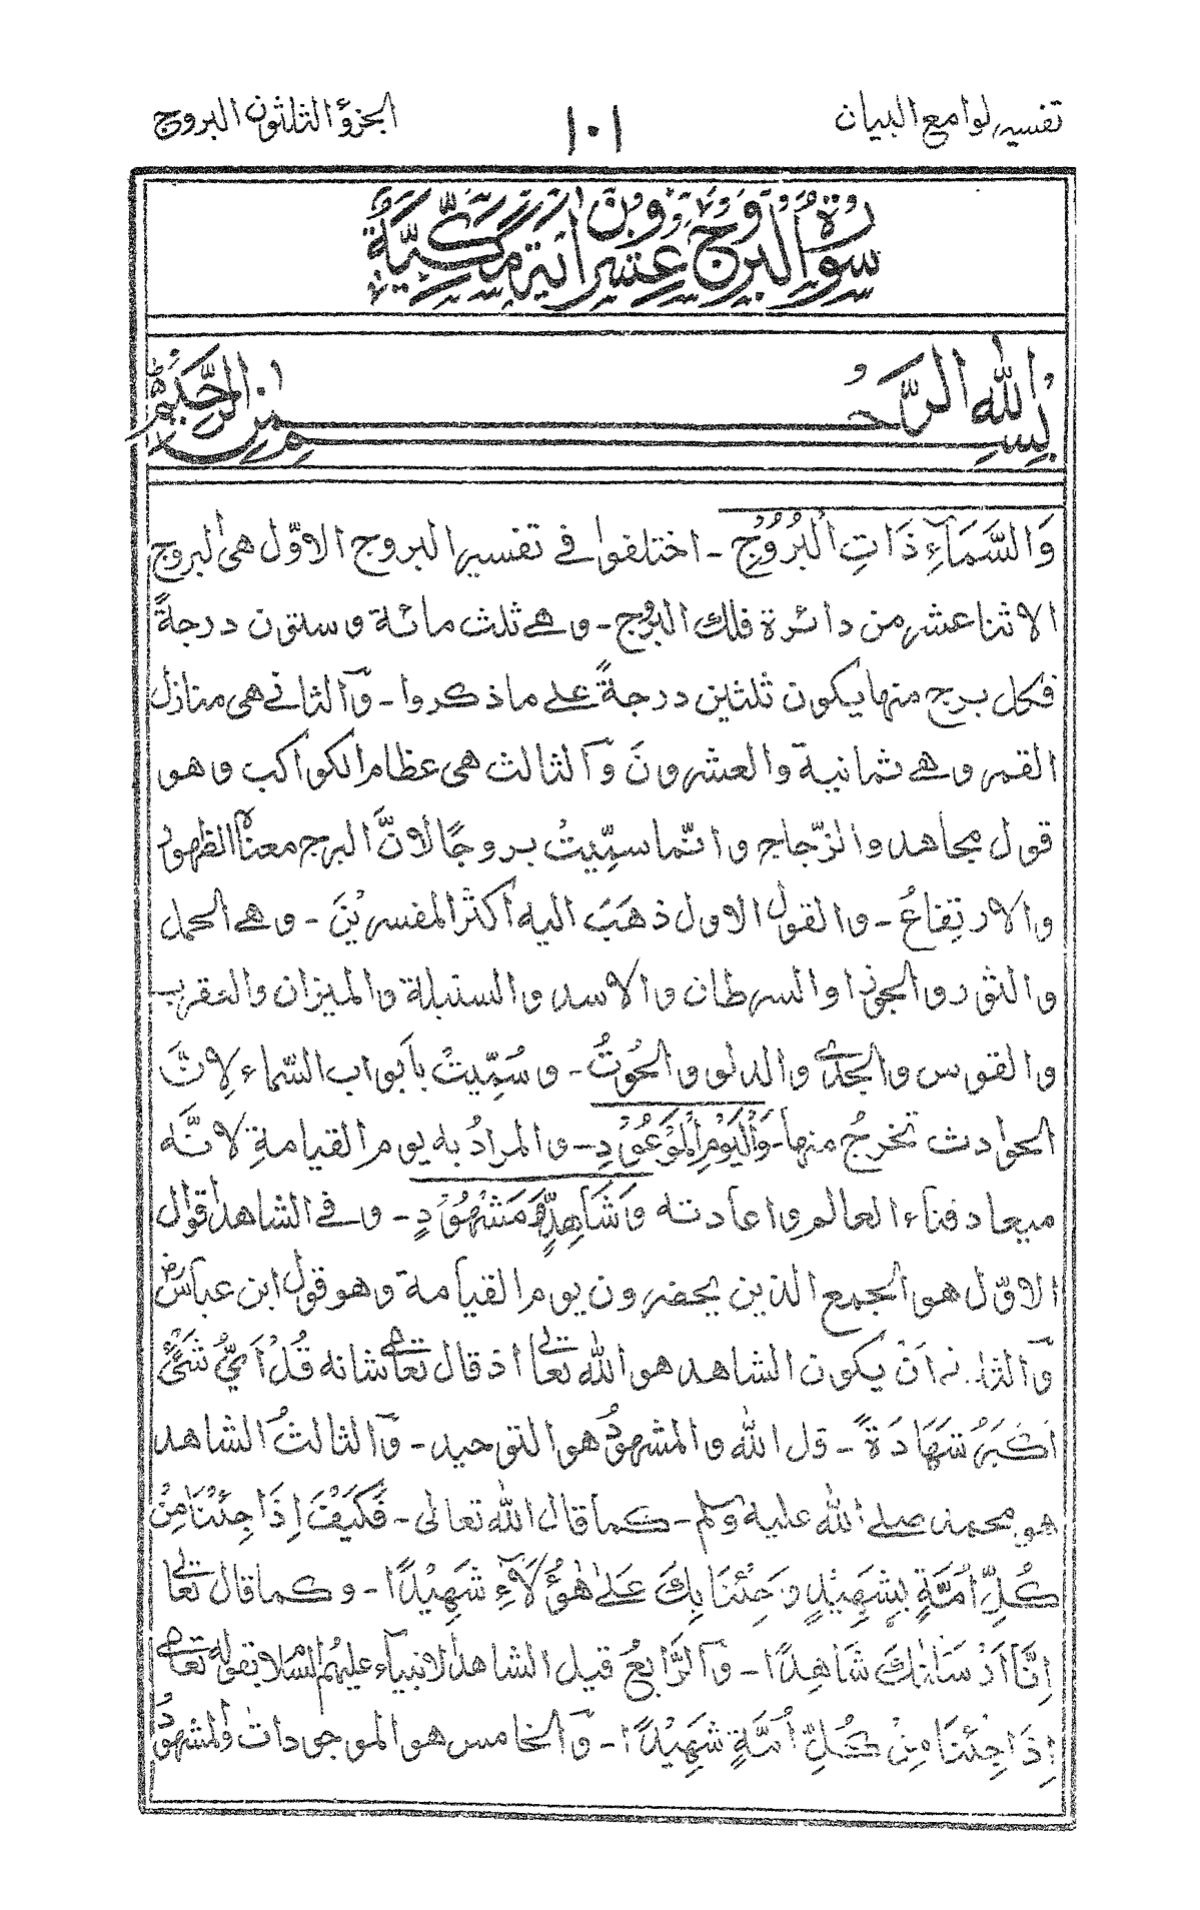 تفسير لوامع البيان
١٠١
الجزؤ الثلثون البروج
سورة البروج عشرون اية مكّيّة
بسم الله الرّحمن الرّحيم
وَالسَّمَآءِ ذَاتِ الْبُرُوْجِ - اختلفوا في تفسير البروج الاوّل هى البروج
الاثنا عشر من دائرة فلك البروج - وهے ثلث مائة وستون درجةً
فكل برج منها يكون ثلثين درجةً علے ماذكروا - وآلثانے هى منازل
القمر وهے ثمانية والعشرونَ وآلثالث هى عظام الكواكب وهو
قول مجاهد والزّجاج وانّما سمِّيتْ بروجًا لانَّ البرج معناه الظهور
والارتفاعُ - والقول الاول ذهَبَ اليه اكثر المفسريْنَ - وهے الحمل
والثور والجوزا والسرطان والاسد والسنبلة والميزان والعقرب
والقوس والجدى والدلو والحُوتُ - وسُمِّيتْ بابواب السّماء لِانَّ
الحوادث تخرجُ منها - وَالْيَوْمِ الْمَوْعُوْدِ - والمرادُ به يوم القيامةِ لانَّه
ميعاد فناء العالم واعادته وَشَاهِدٍ وَّمَشْهُوْدٍ - وفے الشاهد اقوال
الاوّل هو الجمع الذين يحضرون يوم القيامة وهو قول ابن عباسؓ
وآلثانے انْ يكون الشاهد هو الله تعالى اذ قال تعالى شانه قُلْ اَيُّ شَيْءٍ
اَكْبَرُ شَهَادَةً - قل الله والمشهودُ هو التوحيد - وآلثالثُ الشاهد
هو محمد صلے الله عليه وسلم - كما قال الله تعالى - فَكَيْفَ اِذَا جِئْنَا مِنْ
كُلِّ اُمَّةٍ بِشَهِيْدٍ وَجِئْنَا بِكَ عَلٰى هٰؤُلَآءِ شَهِيْدًا - وكما قال تعالى
اِنَّا اَرْسَلْنٰكَ شَاهِدًا - وآلرَّابعُ قيل الشاهد الانبياء عليهم السلام بقوله تعالى
اِذَا جِئْنَا مِنْ كُلِّ اُمَّةٍ شَهِيْدًا - وآلخامس هو الموجودات والمشهودُ